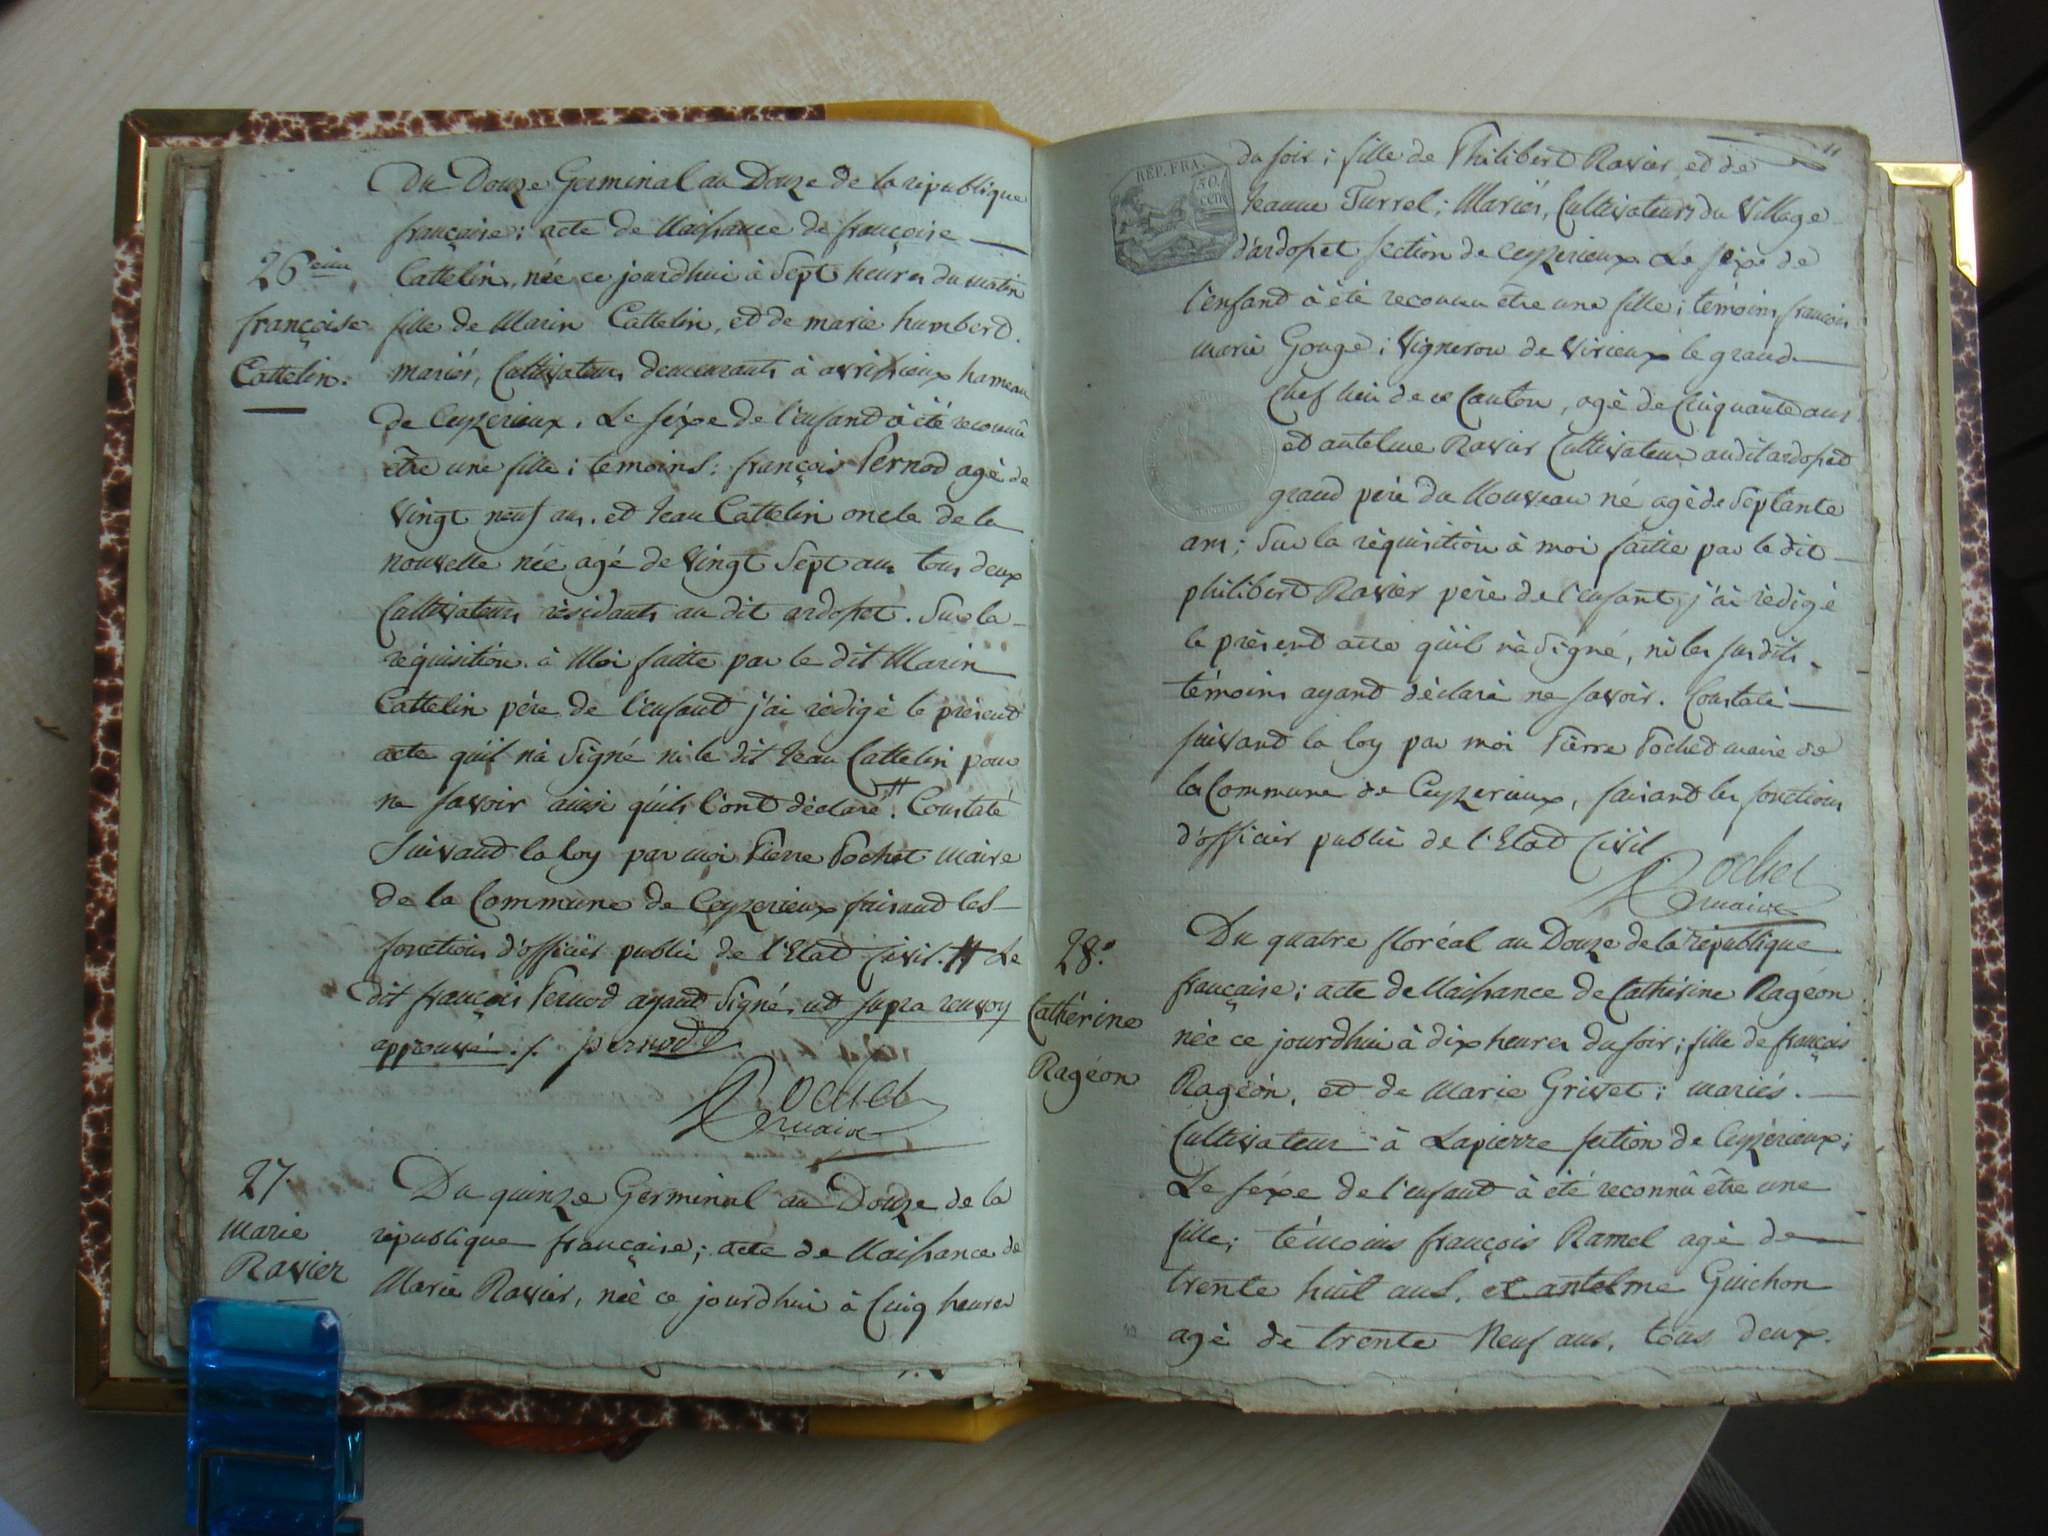 Du Douze Germinal an Douze de la république
française; acte de Naissance de françoise
26eme
françoise
Cattelin.
Cattelin, née ce jourdhui à Sept heures du matin
fille de Marin Cattelin, et de marie humbert.
mariés, Cultivateurs demeurants à avrissieux hameau
de Ceyzerieux. Le séxe de l'enfant à été reconnu
être une fille; temoins: françois Pernod agé de
Vingt neuf ans. et Jean Cattelin oncle de la
nouvelle née agé de Vingt Sept ans tous deux
Cultivateurs résidants au dit ardosset. Sur la
réquisition à Moi faitte par le dit Marin
Cattelin père de l'enfant j'ai rédigé le présent
acte qu'il n'à Signé ni le dit Jean Cattelin pour
ne savoir ainsi qu'ils l'ont déclaré #. Constaté
Suivant la loy par moi Pierre Pochet maire
de la Commune de Ceyzerieux faisant les
fonctions d'officier public de l'Etat Civil. # Le
dit françois Pernod ayant Signé. ut supra renvoy
approuvé ./. pernod
Pochet
maire
27.
marie
Ravier
Du quinze Germinal an Douze de la
république française; acte de Naissance de
Marie Ravier, née ce jourdhui à Cinq heures
11
REP. FRA.
50.
cen
du soir; fille de Philibert Ravier et de
Jeanne Turrel; Mariés, Cultivateurs du Village
d'ardosset section de Ceyzerieux. Le séxe de
l'enfant à été reconnu être une fille; témoins françois
marie Gougé; Vigneron de Virieux le grand
Chef lieu de ce Canton, agé de Cinquante ans
et antelme Ravier Cultivateur audit ardosset
grand père du Nouveau né agé de Septante
ans; Sur la réquisition à moi faitte par le dit
philibert Ravier père de l'enfant, j'ai rédigé
le présent acte qu'il n'à Signé, ni les susdits
témoins ayant déclaré ne savoir. Constaté
suivant la loy par moi Pierre Pochet maire de
la Commune de Ceyzerieux, faisant les fonctions
d'officier public de l'Etat Civil
Pochet
maire
28.e
Cathérine
Ragéon
Du quatre floréal an Douze de la république
française; acte de Naissance de Cathérine Ragéon
née ce jourdhui à dix heures du soir; fille de françois
Ragéon, et de Marie Grivet; mariés.
Cultivateurs à Lapierre section de Ceyzérieux;
Le séxe de l'enfant à été reconnû être une
fille; témoins françois Ramel agé de
trente huit ans. et antelme Guichon
agé de trente Neuf ans, tous deux.